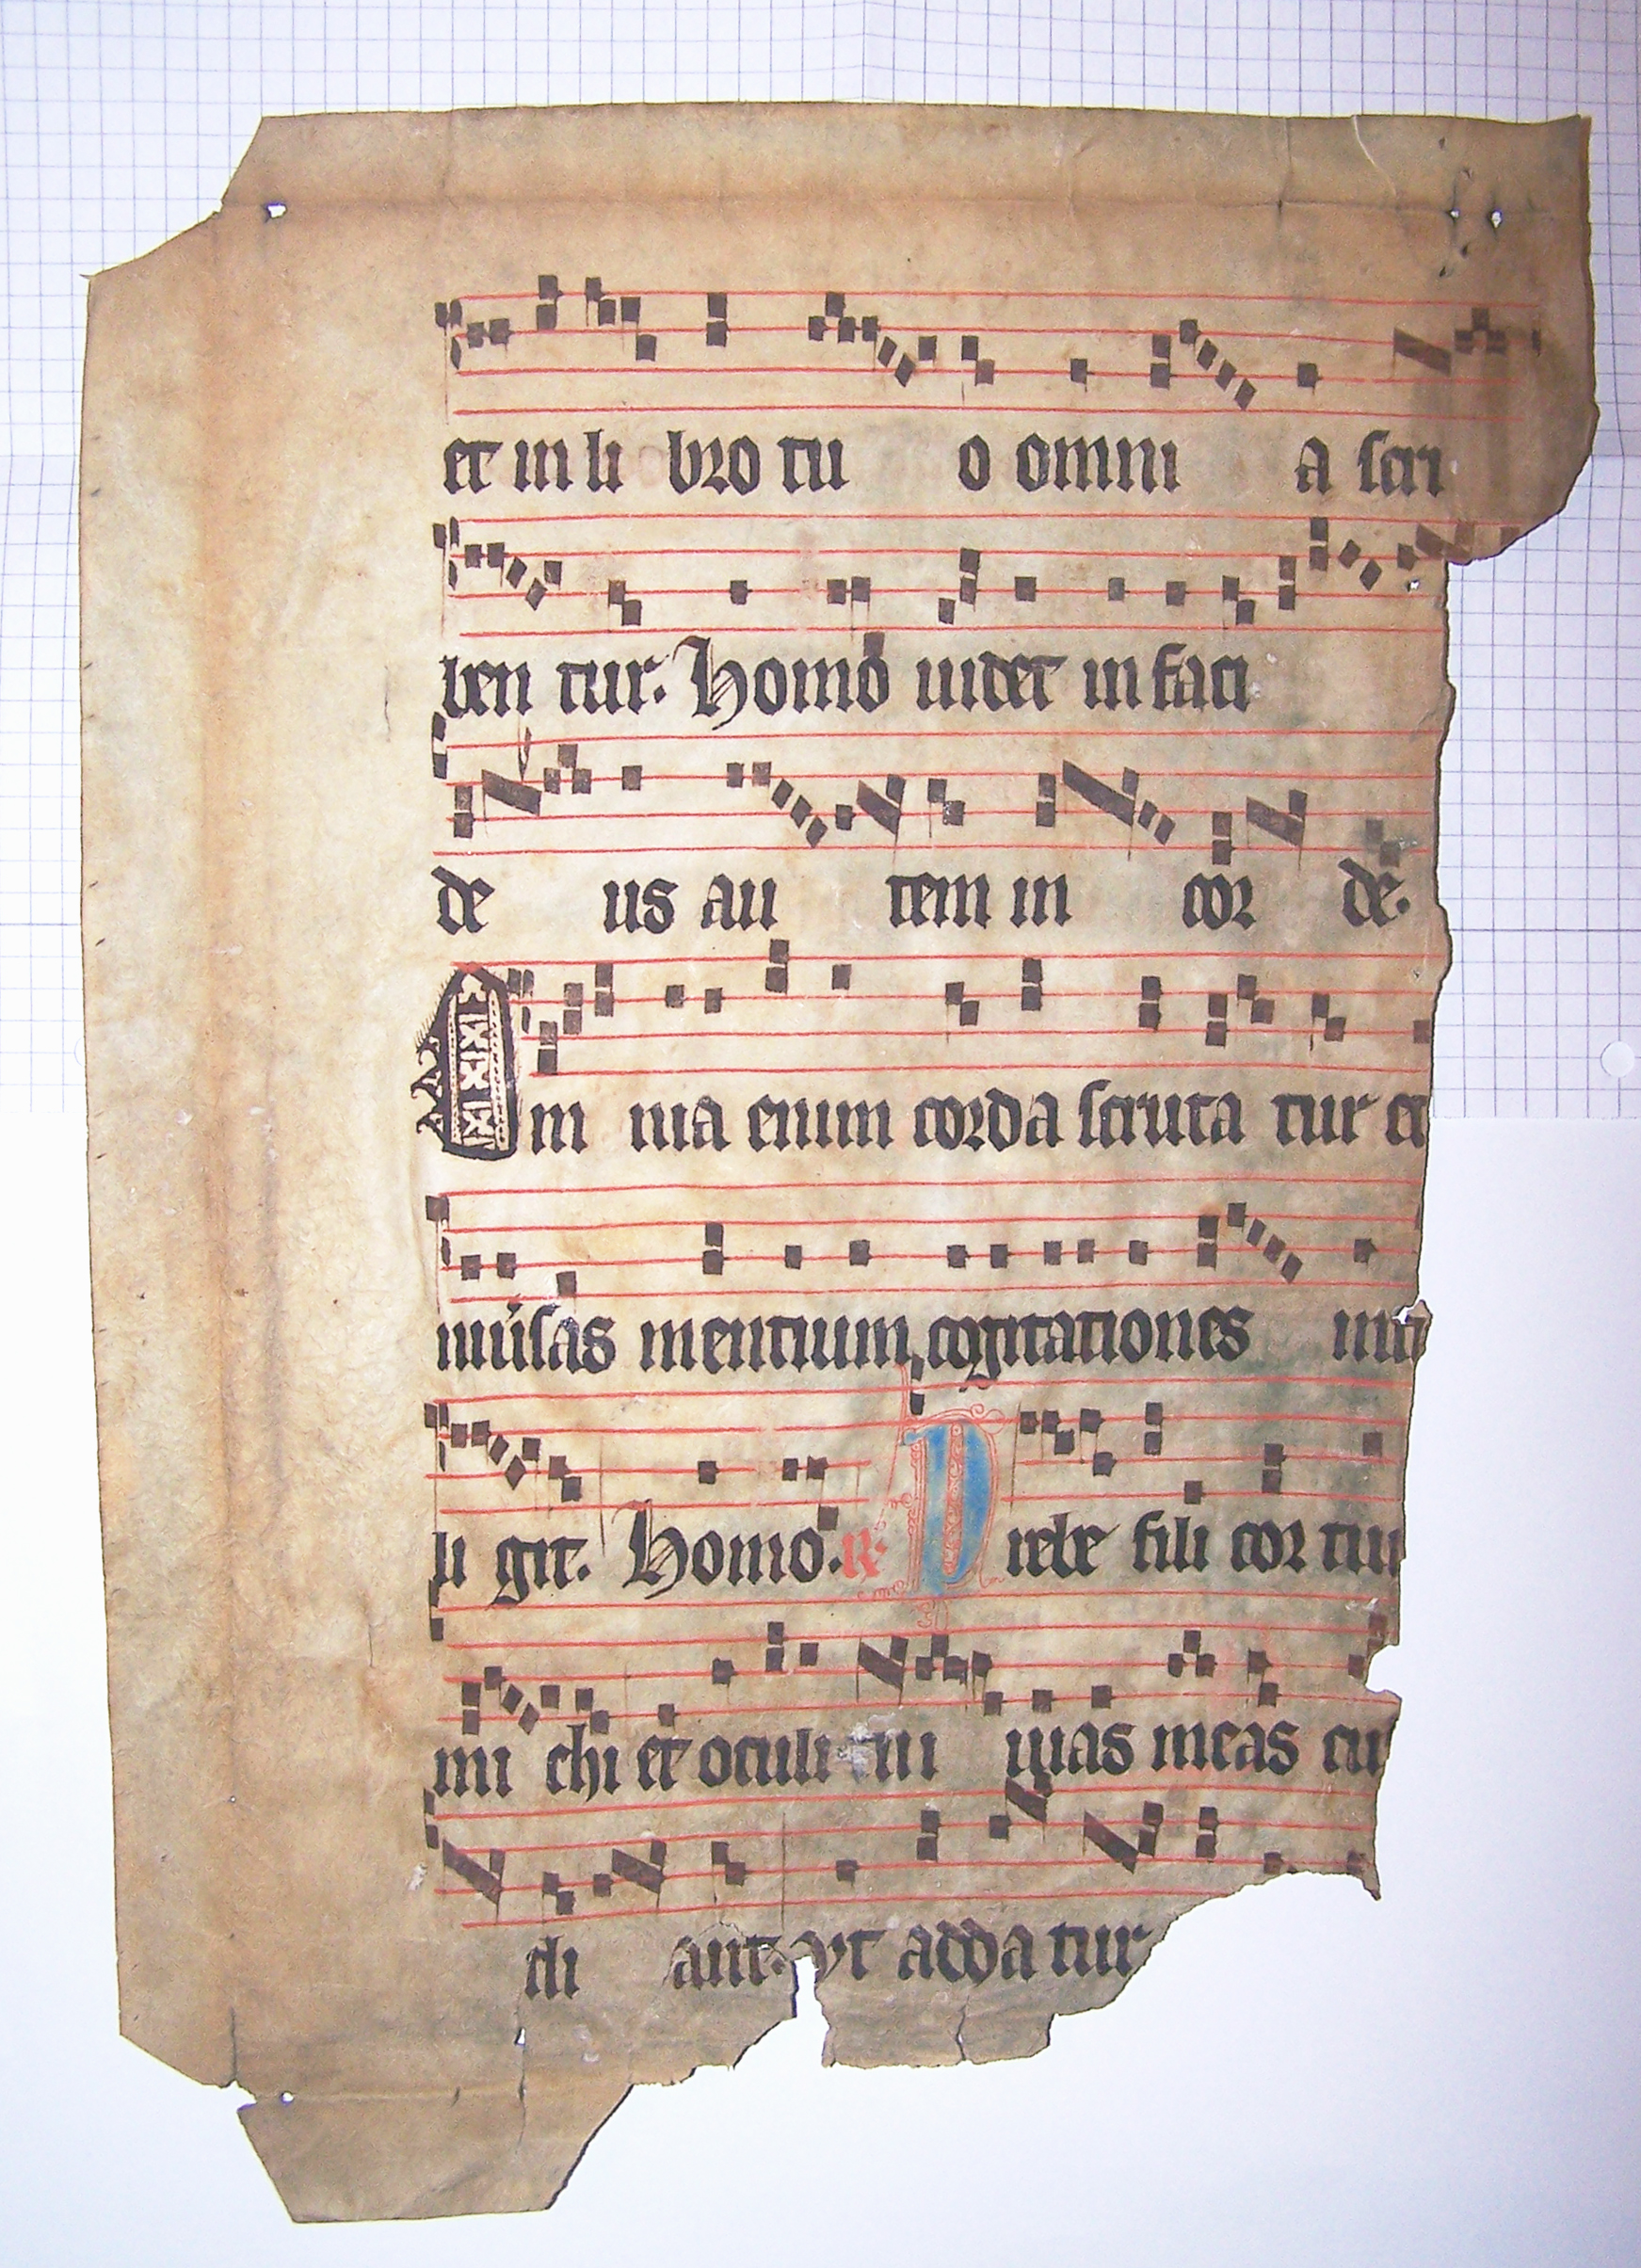 et in li bro tu o omni a scri
ben tur. Homo uidet in faci
de us au tem in cor de.
Om nia enim corda scruta tur et
uniuersas mentium cogitationes inte
li git. Homo. R. Prebe fili cor tuu
mi chi et oculi tui uias meas cu
di ant. vt adda tur